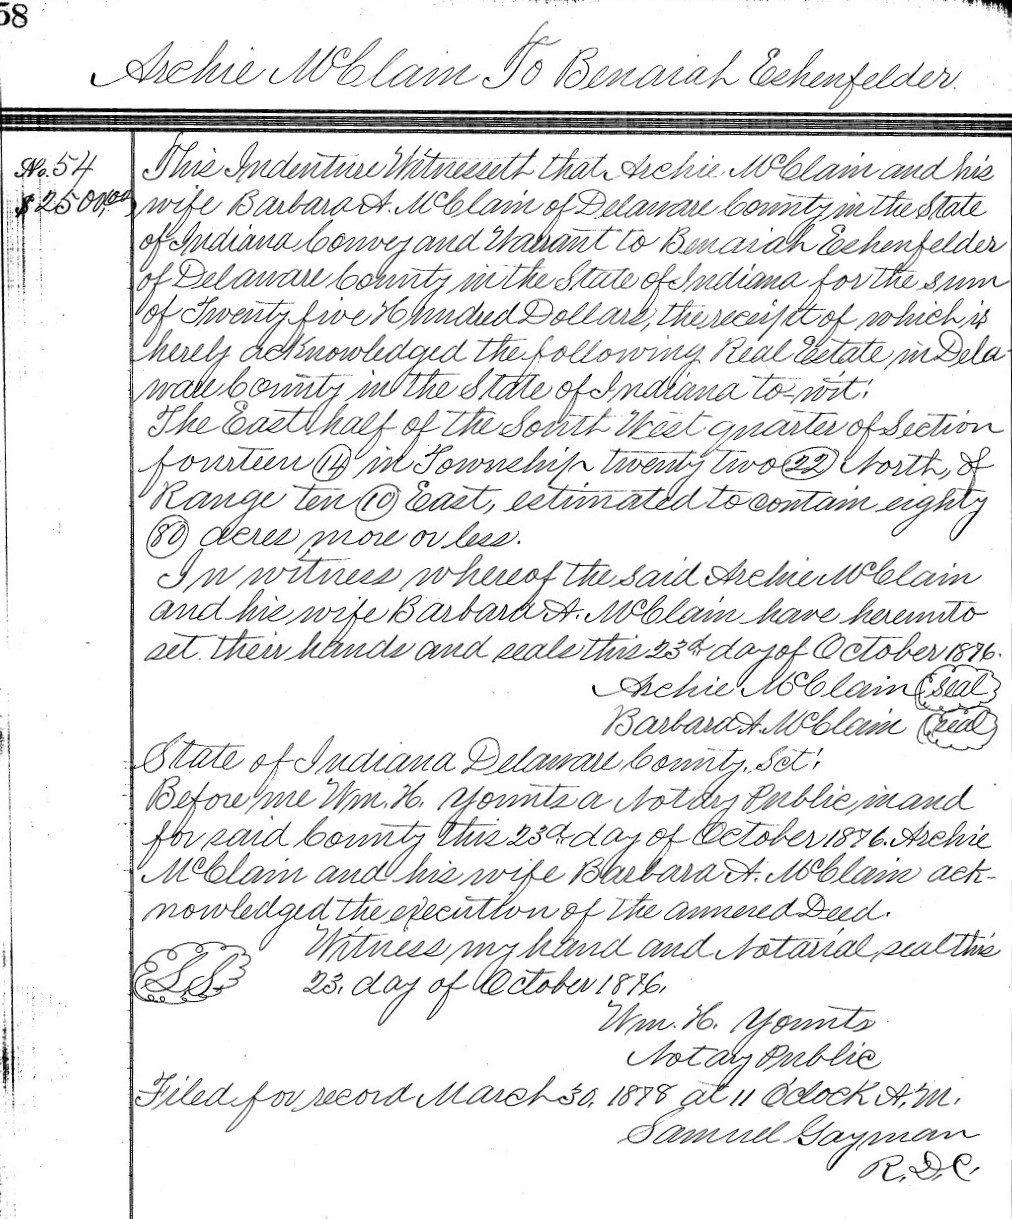 58
Archie McClain To Benaiah Eshenfelder.
No. 54
$2500.00
This Indenture Witnesseth that Archie McClain and his
wife Barbara A. McClain of Delaware County in the State
of Indiana Convey and Warrant to Benaiah Eshenfelder
of Delaware County in the State of Indiana for the sum
of Twenty five Hundred Dollars, the receipt of which is
herely acknowledged the following Real Estate in Dela-
ware County in the State of Indiana to-wit:
The East half of the South West quarter of Section
fourteen (14) in Township twenty two (22) North, of
Range ten (10) East, estimated to contain eighty
(80) acres more or less.
In witness whereof the said Archie McClain
and his wife Barbara A. McClain have hereunto
set their hands and seals this 23d day of October 1876.
Archie McClain (seal)
Barbara A. McClain (seal)
State of Indiana Delaware County, Sct:
Before me Wm. H. Younts a Notary Public in and
for said County this 23d day of October 1876. Archie
McClain and his wife Barbara A. McClain ack-
nowledged the execution of the annexed Deed.
Witness my hand and Notarial seal this
L.S.
23. day of October 1876.
Wm. H. Younts
Notary Public
Filed for record March 30, 1878 at 11 O'clock A.M.
Samuel Gayman
R.D.C.